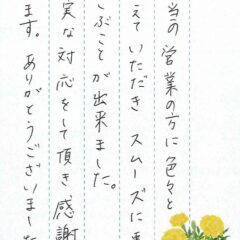 当の営業の方に色々と
えていただきスムーズに
ぶことが出来ました。
実な対応をして頂き感謝
ます。ありがとうございました